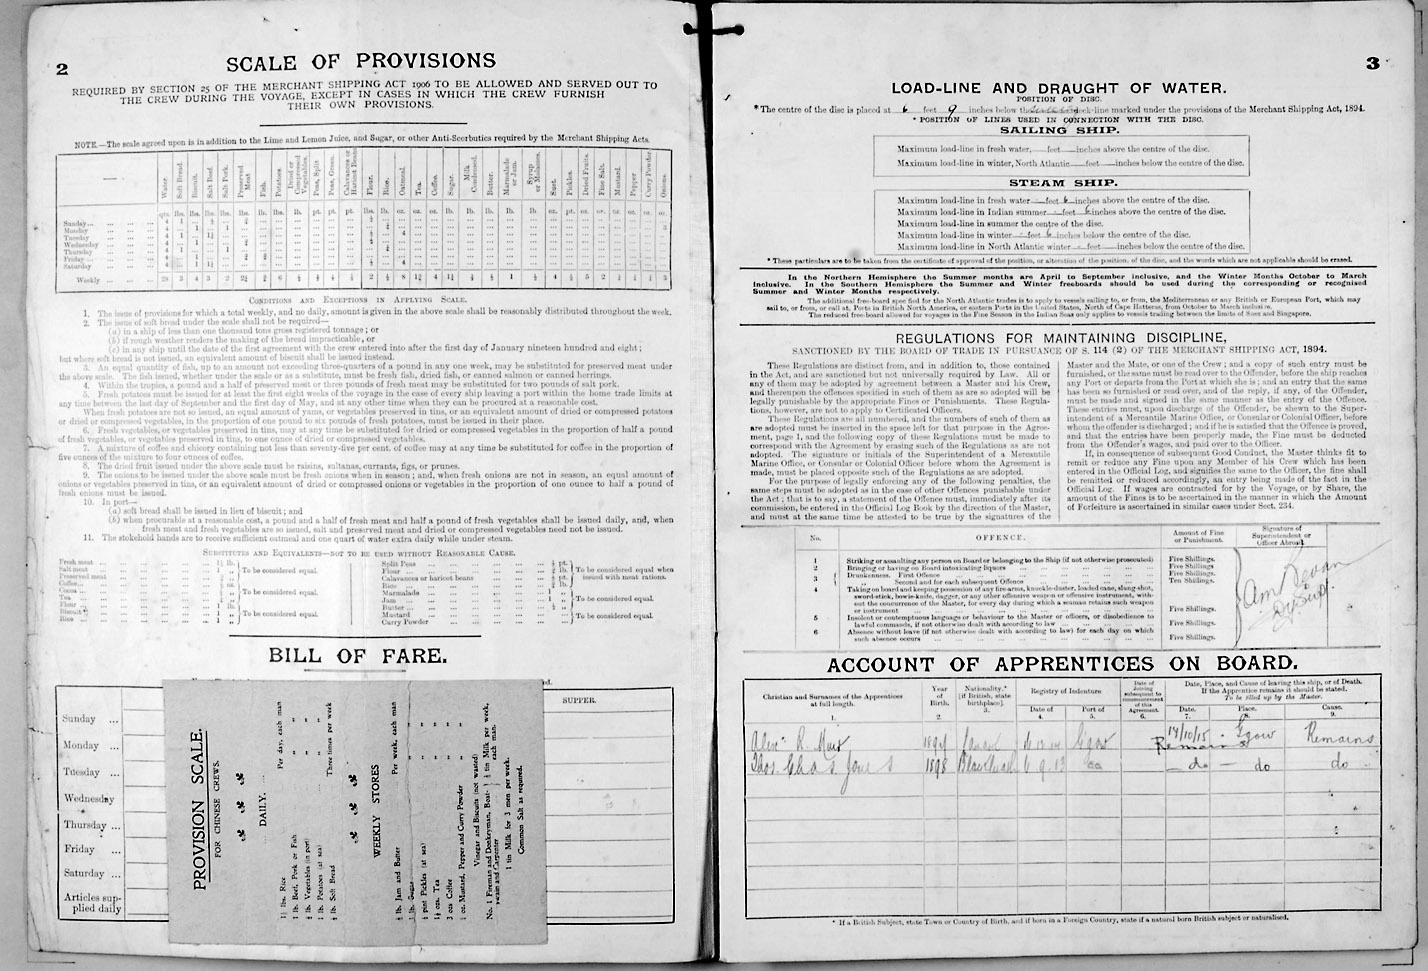 2
SCALE OF PROVISIONS
REQUIRED BY SECTION 25 OF THE MERCHANT SHIPPING ACT 1906 TO BE ALLOWED AND SERVED OUT TO
THE CREW DURING THE VOYAGE, EXCEPT IN CASES IN WHICH THE CREW FURNISH
THEIR OWN PROVISIONS.
NOTE.—The scale agreed upon is in addition to the Lime and Lemon Juice, and Sugar, or other Anti-Scorbutics required by the Merchant Shipping Acts.
Water. Soft Bread. Biscuit. Salt Beef. Salt Pork. Preserved Meat Fish. Potatoes. Dried or Compressed Vegetables. Peas, Split Peas, Green. Calavances or Haricot Beans Flour. Rice. Oatmeal. Tea. Coffee. Sugar. Milk Condensed. Butter. Marmalade or Jam. Syrup or Molasses. Suet. Pickles. Dried Fruits. Fine Salt. Mustard. Pepper Curry Powder. Onions.
Sunday
Monday
Tuesday
Wednesday
Thursday
Friday
Saturday
Weekly
CONDITIONS AND EXCEPTIONS IN APPLYING SCALE.
1. The issue of provisions for which a total weekly, and no daily, amount is given in the above scale shall be reasonably distributed throughout the week.
2. The issue of soft bread under the scale shall not be required—
(a) in a ship of less than one thousand tons gross registered tonnage; or
(b) if rough weather renders the making of the bread impracticable, or
(c) in any ship until the date of the first agreement with the crew entered into after the first day of January nineteen hundred and eight;
but where soft bread is not issued, an equivalent amount of biscuit shall be issued instead.
3. An equal quantity of fish, up to an amount not exceeding three-quarters of a pound in any one week, may be substituted for preserved meat under
the above scale. The fish issued, whether under the scale or as a substitute, must be fresh fish, dried fish, or canned salmon or canned herrings.
4. Within the tropics, a pound and a half of preserved meat or three pounds of fresh meat may be substituted for two pounds of salt pork.
5. Fresh potatoes must be issued for at least the first eight weeks of the voyage in the case of every ship leaving a port within the home trade limits at
any time between the last day of September and the first day of May, and at any other time when they can be procured at a reasonable cost.
When fresh potatoes are not so issued, an equal amount of yams, or vegetables preserved in tins, or an equivalent amount of dried or compressed potatoes
or dried or compressed vegetables, in the proportion of one pound to six pounds of fresh potatoes, must be issued in their place.
6. Fresh vegetables, or vegetables preserved in tins, may at any time be substituted for dried or compressed vegetables in the proportion of half a pound
of fresh vegetables, or vegetables preserved in tins, to one ounce of dried or compressed vegetables.
7. A mixture of coffee and chicory containing not less than seventy-five per cent. of coffee may at any time be substituted for coffee in the proportion of
five ounces of the mixture to four ounces of coffee.
8. The dried fruit issued under the above scale must be raisins, sultanas, currants, figs, or prunes.
9. The onions to be issued under the above scale must be fresh onions when in season; and, when fresh onions are not in season, an equal amount of
onions or vegetables preserved in tins, or an equivalent amount of dried or compressed onions or vegetables in the proportion of one ounce to half a pound of
fresh onions must be issued.
10. In port—
(a) soft bread shall be issued in lieu of biscuit; and
(b) when procurable at a reasonable cost, a pound and a half of fresh meat and half a pound of fresh vegetables shall be issued daily, and, when
fresh meat and fresh vegetables are so issued, salt and preserved meat and dried or compressed vegetables need not be issued.
11. The stokehold hands are to receive sufficient oatmeal and one quart of water extra daily while under steam.
SUBSTITUTES AND EQUIVALENTS—NOT TO BE USED WITHOUT REASONABLE CAUSE.
Fresh meat
Salt meat
Preserved meat
To be considered equal.
Coffee
Cocoa
Tea
To be considered equal.
Flour
Biscuit
Rice
To be considered equal.
Split Peas
Flour
Calavances or haricot beans
Rice
To be considered equal when
issued with meat rations.
Marmalade
Jam
Butter
To be considered equal.
Mustard
Curry Powder
To be considered equal.
BILL OF FARE.
SUPPER.
Sunday
Monday
Tuesday
Wednesday
Thursday
Friday
Saturday
Articles sup-
plied daily
PROVISION SCALE.
FOR CHINESE CREWS.
DAILY.
1½ lbs. Rice Per day, each man
1 lb. Beef, Pork or Fish " "
½ lb. Vegetables (in port) " "
1 lb. Potatoes (at sea) " "
½ lb. Soft Bread Three times per week
WEEKLY STORES
½ lb. Jam and Butter Per week, each man
lb. Sugar " "
½ pint Pickles (at sea) " "
1½ ozs. Tea " "
3 ozs Coffee " "
oz. Mustard, Pepper and Curry Powder " "
Vinegar and Biscuits (not wasted)
No. 1 Fireman and Donkeyman, Boat- swain and Carpenter ½ tin Milk per week, each man.
1 tin Milk for 3 men per week.
Common Salt as required.
3
LOAD-LINE AND DRAUGHT OF WATER.
POSITION OF DISC.
*The centre of the disc is placed at 6 feet 9 inches below the deck-line marked under the provisions of the Merchant Shipping Act, 1894.
* POSITION OF LINES USED IN CONNECTION WITH THE DISC.
SAILING SHIP.
Maximum load-line in fresh water, — feet — inches above the centre of the disc.
Maximum load-line in winter, North Atlantic — feet — inches below the centre of the disc.
STEAM SHIP.
Maximum load-line in fresh water — feet 6 inches above the centre of the disc.
Maximum load-line in Indian summer — feet 6 inches above the centre of the disc.
Maximum load-line in summer the centre of the disc.
Maximum load-line in winter — feet 6 inches below the centre of the disc.
Maximum load-line in North Atlantic winter - feet — inches below the centre of the disc.
* These particulars are to be taken from the certificate of approval of the position, or alteration of the position, of the disc, and the words which are not applicable should be erased.
In the Northern Hemisphere the Summer months are April to September inclusive, and the Winter Months October to March
inclusive. In the Southern Hemisphere the Summer and Winter freeboards should be used during the corresponding or recognised
Summer and Winter Months respectively.
The additional freeboard specified for the North Atlantic trades is to apply to vessels sailing to, or from, the Mediterranean or any British or European Port, which may
sail to, or from, or call at, Ports in British North America, or eastern Ports in the United States, North of Cape Hatteras, from October to March inclusive.
The reduced freeboard allowed for voyages in the Fine Season in the Indian Seas only applies to vessels trading between the limits of Suez and Singapore.
REGULATIONS FOR MAINTAINING DISCIPLINE,
SANCTIONED BY THE BOARD OF TRADE IN PURSUANCE OF S. 114 (2) OF THE MERCHANT SHIPPING ACT, 1894.
These Regulations are distinct from, and in addition to, those contained
in the Act, and are sanctioned but not universally required by Law. All or
any of them may be adopted by agreement between a Master and his Crew,
and thereupon the offences specified in such of them as are so adopted will be
legally punishable by the appropriate Fines or Punishments. These Regula-
tions, however, are not to apply to Certificated Officers.
These Regulations are all numbered, and the numbers of such of them as
are adopted must be inserted in the space left for that purpose in the Agree-
ment, page 1, and the following copy of these Regulations must be made to
correspond with the Agreement by erasing such of the Regulations as are not
adopted. The signature or initials of the Superintendent of a Mercantile
Marine Office, or Consular or Colonial Officer before whom the Agreement is
made, must be placed opposite such of the Regulations as are adopted.
For the purpose of legally enforcing any of the following penalties, the
same steps must be adopted as in the case of other Offences punishable under
the Act; that is to say, a statement of the Offence must, immediately after its
commission, be entered in the Official Log Book by the direction of the Master,
and must at the same time be attested to be true by the signatures of the
Master and the Mate, or one of the Crew; and a copy of such entry must be
furnished, or the same must be read over to the Offender, before the ship reaches
any Port or departs from the Port at which she is; and an entry that the same
has been so furnished or read over, and of the reply, if any, of the Offender,
must be made and signed in the same manner as the entry of the Offence.
These entries must, upon discharge of the Offender, be shewn to the Super-
intendent of a Mercantile Marine Office, or Consular or Colonial Officer, before
whom the offender is discharged; and if he is satisfied that the Offence is proved,
and that the entries have been properly made, the Fine must be deducted
from the Offender's wages, and paid over to the Officer.
If, in consequence of subsequent Good Conduct, the Master thinks fit to
remit or reduce any Fine upon any Member of his Crew which has been
entered in the Official Log, and signifies the same to the Officer, the fine shall
be remitted or reduced accordingly, an entry being made of the fact in the
Official Log. If wages are contracted for by the Voyage, or by Share, the
Amount of the Fines is to be ascertained in the manner in which the Amount
of Forfeiture is ascertained in similar cases under Sect. 234.
No. OFFENCE. Amount of Fine or Punishment. Signature of Superintendent or Officer Abroad.
1 Striking or assaulting any person on Board or belonging to the Ship (if not otherwise prosecuted) Five Shillings.
2 Bringing or having on Board intoxicating liquors Five Shillings.
3 Drunkenness. First Offence Five Shillings.
Second and for each subsequent Offence Ten Shillings.
4 Taking on board and keeping possession of any fire-arms, knuckle-duster, loaded cane, slung-shot,
sword-stick, bowie-knife, dagger, or any other offensive weapon or offensive instrument, with-
out the concurrence of the Master, for every day during which a seaman retains such weapon
or instrument Five Shillings.
5 Insolent or contemptuous language or behaviour to the Master or officers, or disobedience to
lawful commands, if not otherwise dealt with according to law Five Shillings.
6 Absence without leave (if not otherwise dealt with according to law) for each day on which
such absence occurs Five Shillings.
ACCOUNT OF APPRENTICES ON BOARD.
Christian and Surnames of the Apprentices at full length. Year of Birth. Nationality.* [if British, state birthplace]. Registry of Indenture Date of Joining subsequent to commencement of this Agreement. Date, Place, and Cause of leaving this ship, or of Death.
If the Apprentice remains it should be stated.
To be filled up by the Master.
Date of Port of Date. Place. Cause.
1. 2. 3. 4. 5. 6. 7. 8. 9.
Alexr R. Muir 14/10/15 Ggow Remains
Remains
Thos. Chas. Jones 1898 do — do do
* If a British Subject, state Town or Country of Birth, and if born in a Foreign Country, state if a natural born British subject or naturalised.